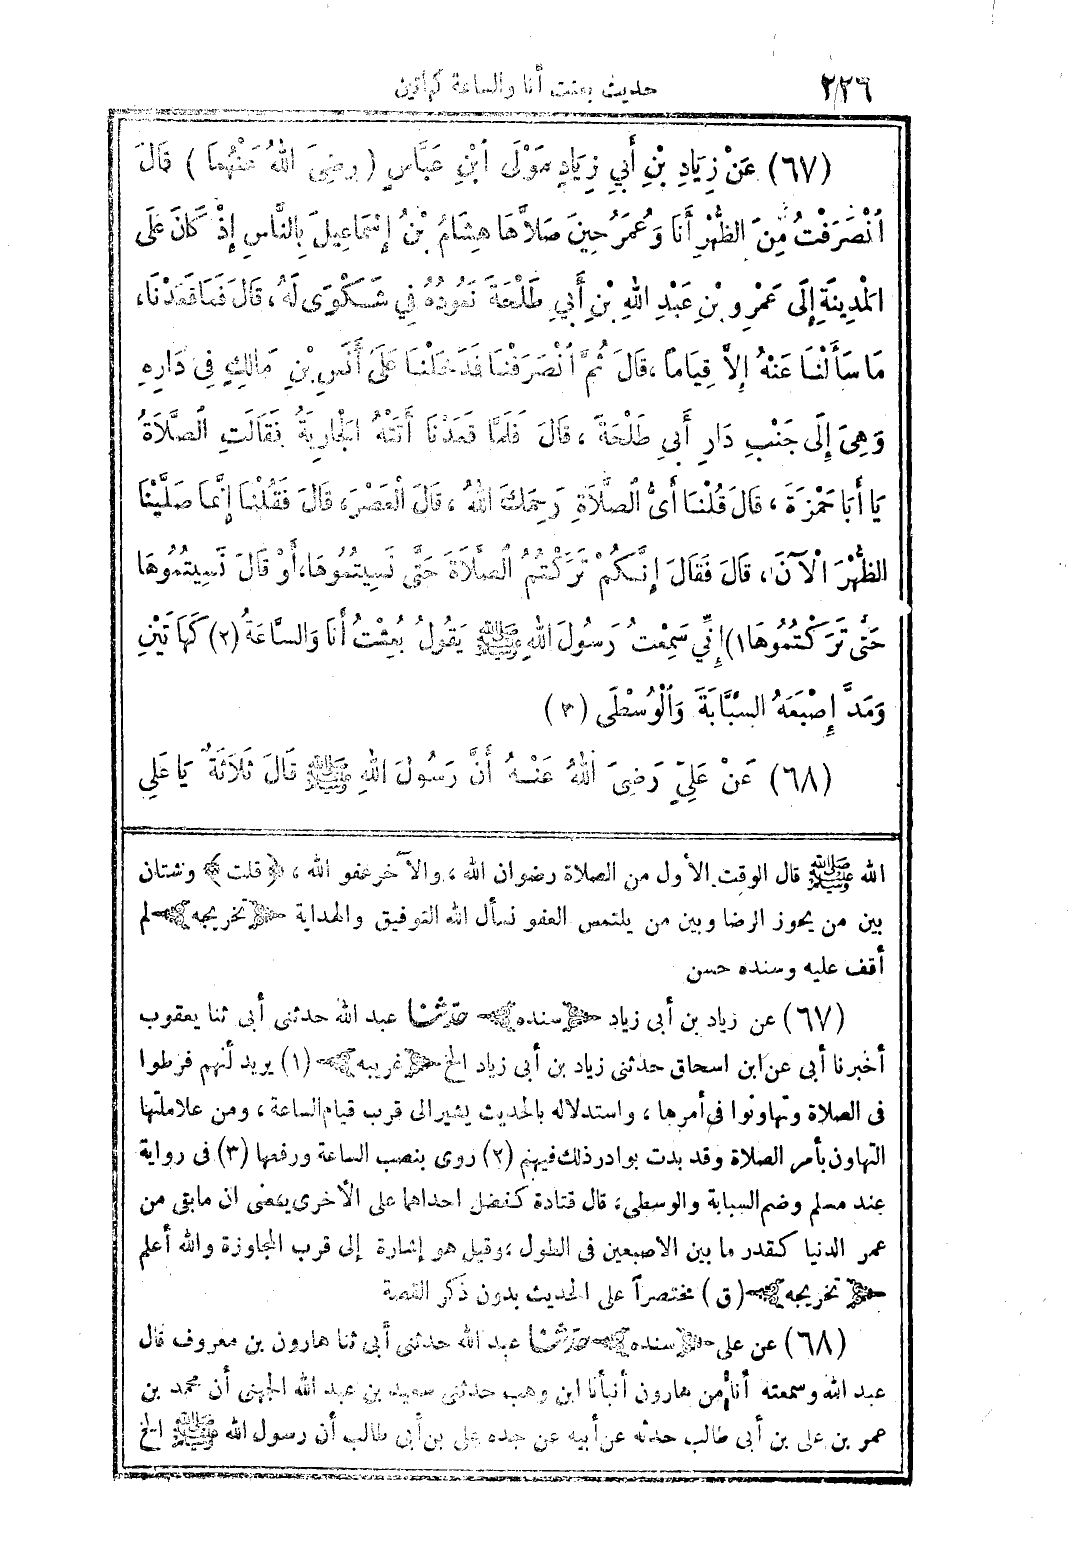 ٢٢٦
حديث بعثت أنا والساعة كهاتين
(٦٧) عَنْ زِيَادِ بْنِ أَبِي زِيَادٍ مَوْلَى ابْنِ عَبَّاسٍ (رضِيَ اللهُ عَنْهُمَا) قَالَ
اُنْصَرَفْتُ مِنَ الظُّهْرِ أَنَا وَعُمَرُ حِينَ صَلَّاهَا هِشَامُ بْنُ إِسْمَاعِيلَ بِالنَّاسِ إِذْ كَانَ عَلَى
المَدِينَةِ إِلَى عَمْرِو بْنِ عَبْدِ اللهِ بْنِ أَبِي طَلْحَةَ نَعُودُهُ فِي شَكْوَى لَهُ، قَالَ فَمَا قَعَدْنَا،
مَا سَأَلْنَا عَنْهُ إِلاَّ قِيَامًا، قَالَ ثُمَّ اُنْصَرَفْنَا فَدَخَلْنَا عَلَى أَنَسِ بْنِ مَالِكٍ فِي دَارِهِ
وَهِيَ إِلَى جَنْبِ دَارِ أَبِي طَلْحَةَ، قَالَ فَلَمَّا قَعَدْنَا أَتَتْهُ الجَارِيَةُ فَقَالَتِ الصَّلَاةُ
يَا أَبَا حَمْزَةَ، قَالَ قُلْنَا أَىُّ الصَّلَاةِ رَحِمَكَ اللهُ، قَالَ الْعَصْرَ، قَالَ فَقُلْنَا إِنَّمَا صَلَّيْنَا
الظُّهْرَ الْآنَ، قَالَ فَقَالَ إِنَّكُمْ تَرَكْتُمُ الصَّلَاةَ حَتَّى نَسِيتُمُوهَا، أَوْ قَالَ نَسِيتُمُوهَا
حَتَّى تَرَكْتُمُوهَا(١) إِنِّي سَمِعْتُ رَسُولَ اللهِ ﷺ يَقُولُ بُعِثْتُ أَنَا وَالسَّاعَةُ (٢) كَهَاتَيْنِ
وَمَدَّ إِصْبَعَهُ السَّبَّابَةَ وَالْوُسْطَى (٣)
(٦٨) عَنْ عَلِيٍّ رَضِىَ اللهُ عَنْهُ أَنَّ رَسُولَ اللهِ ﷺ قَالَ ثَلَاثَةٌ يَا عَلِي
الله ﷺ قال الوقت الأول من الصلاة رضوان الله، والآخر عفو الله، ﴿قلت﴾ وشتان
بين من يحوز الرضا وبين من يلتمس العفو نسأل الله التوفيق والهداية ﴿تخريجه﴾ لم
أقف عليه وسنده حسن
(٦٧) عن زياد بن أبى زياد ﴿سنده﴾ حدّثنا عبد الله حدثنى أبى ثنا يعقوب
أخبرنا أبى عن ابن اسحاق حدثنى زياد بن أبى زياد الخ ﴿غريبه﴾ (١) يريد أنهم فرطوا
فى الصلاة وتهاونوا فى أمرها، واستدلاله بالحديث يشير الى قرب قيام الساعة، ومن علاماتها
التهاون بأمر الصلاة وقد بدت بوادر ذلك فيهم (٢) روى بنصب الساعة ورفعها (٣) فى رواية
عند مسلم وضم السبابة والوسطى، قال قتادة كفضل احداهما على الأخرى يعنى ان مابقى من
عمر الدنيا كقدر ما بين الاصبعين فى الطول، وقيل هو إشارة إلى قرب المجاوزة والله أعلم
﴿تخريجه﴾ (ق) مختصرًا على الحديث بدون ذكر القصة
(٦٨) عن على ﴿سنده﴾ حدّثنا عبد الله حدثنى أبى ثنا هارون بن معروف قال
عبد الله وسمعته أنا من هارون أنبأنا ابن وهب حدثنى سعيد بن عبد الله الجهنى أن محمد بن
عمر بن على بن أبى طالب حدثه عن أبيه عن جده على بن أبى طالب أن رسول الله ﷺ الخ